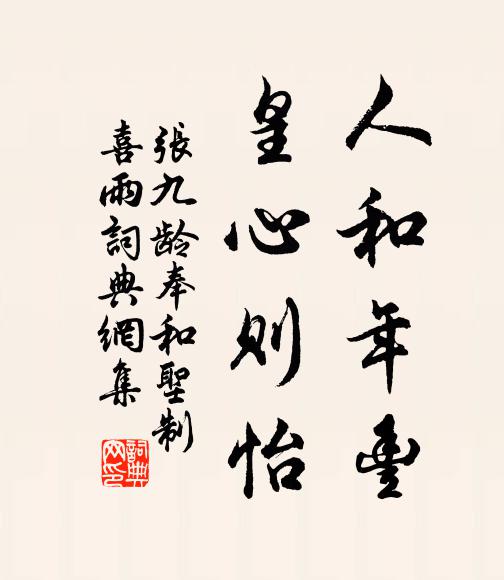 人和年豐
皇心則怡
張九齡奉和聖制
喜雨詞典網集
詞典
网印